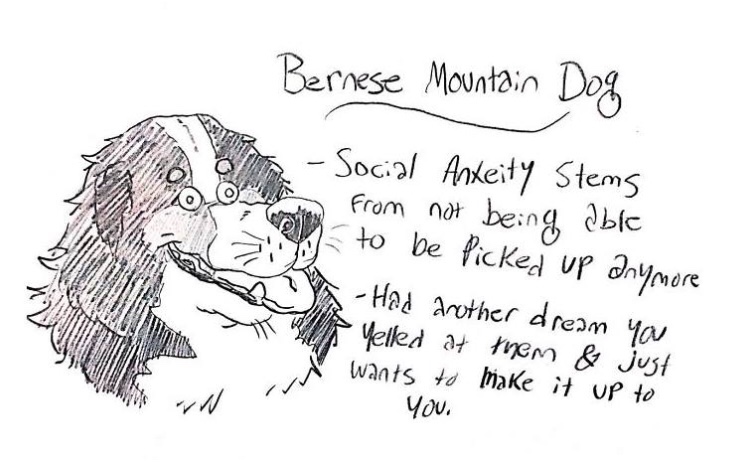 Bernese Mountain Dog
- Social Anxeity Stems
From not being able
to be Picked up anymore
- Had another dream you
Yelled at them & just
wants to make it up to
you.